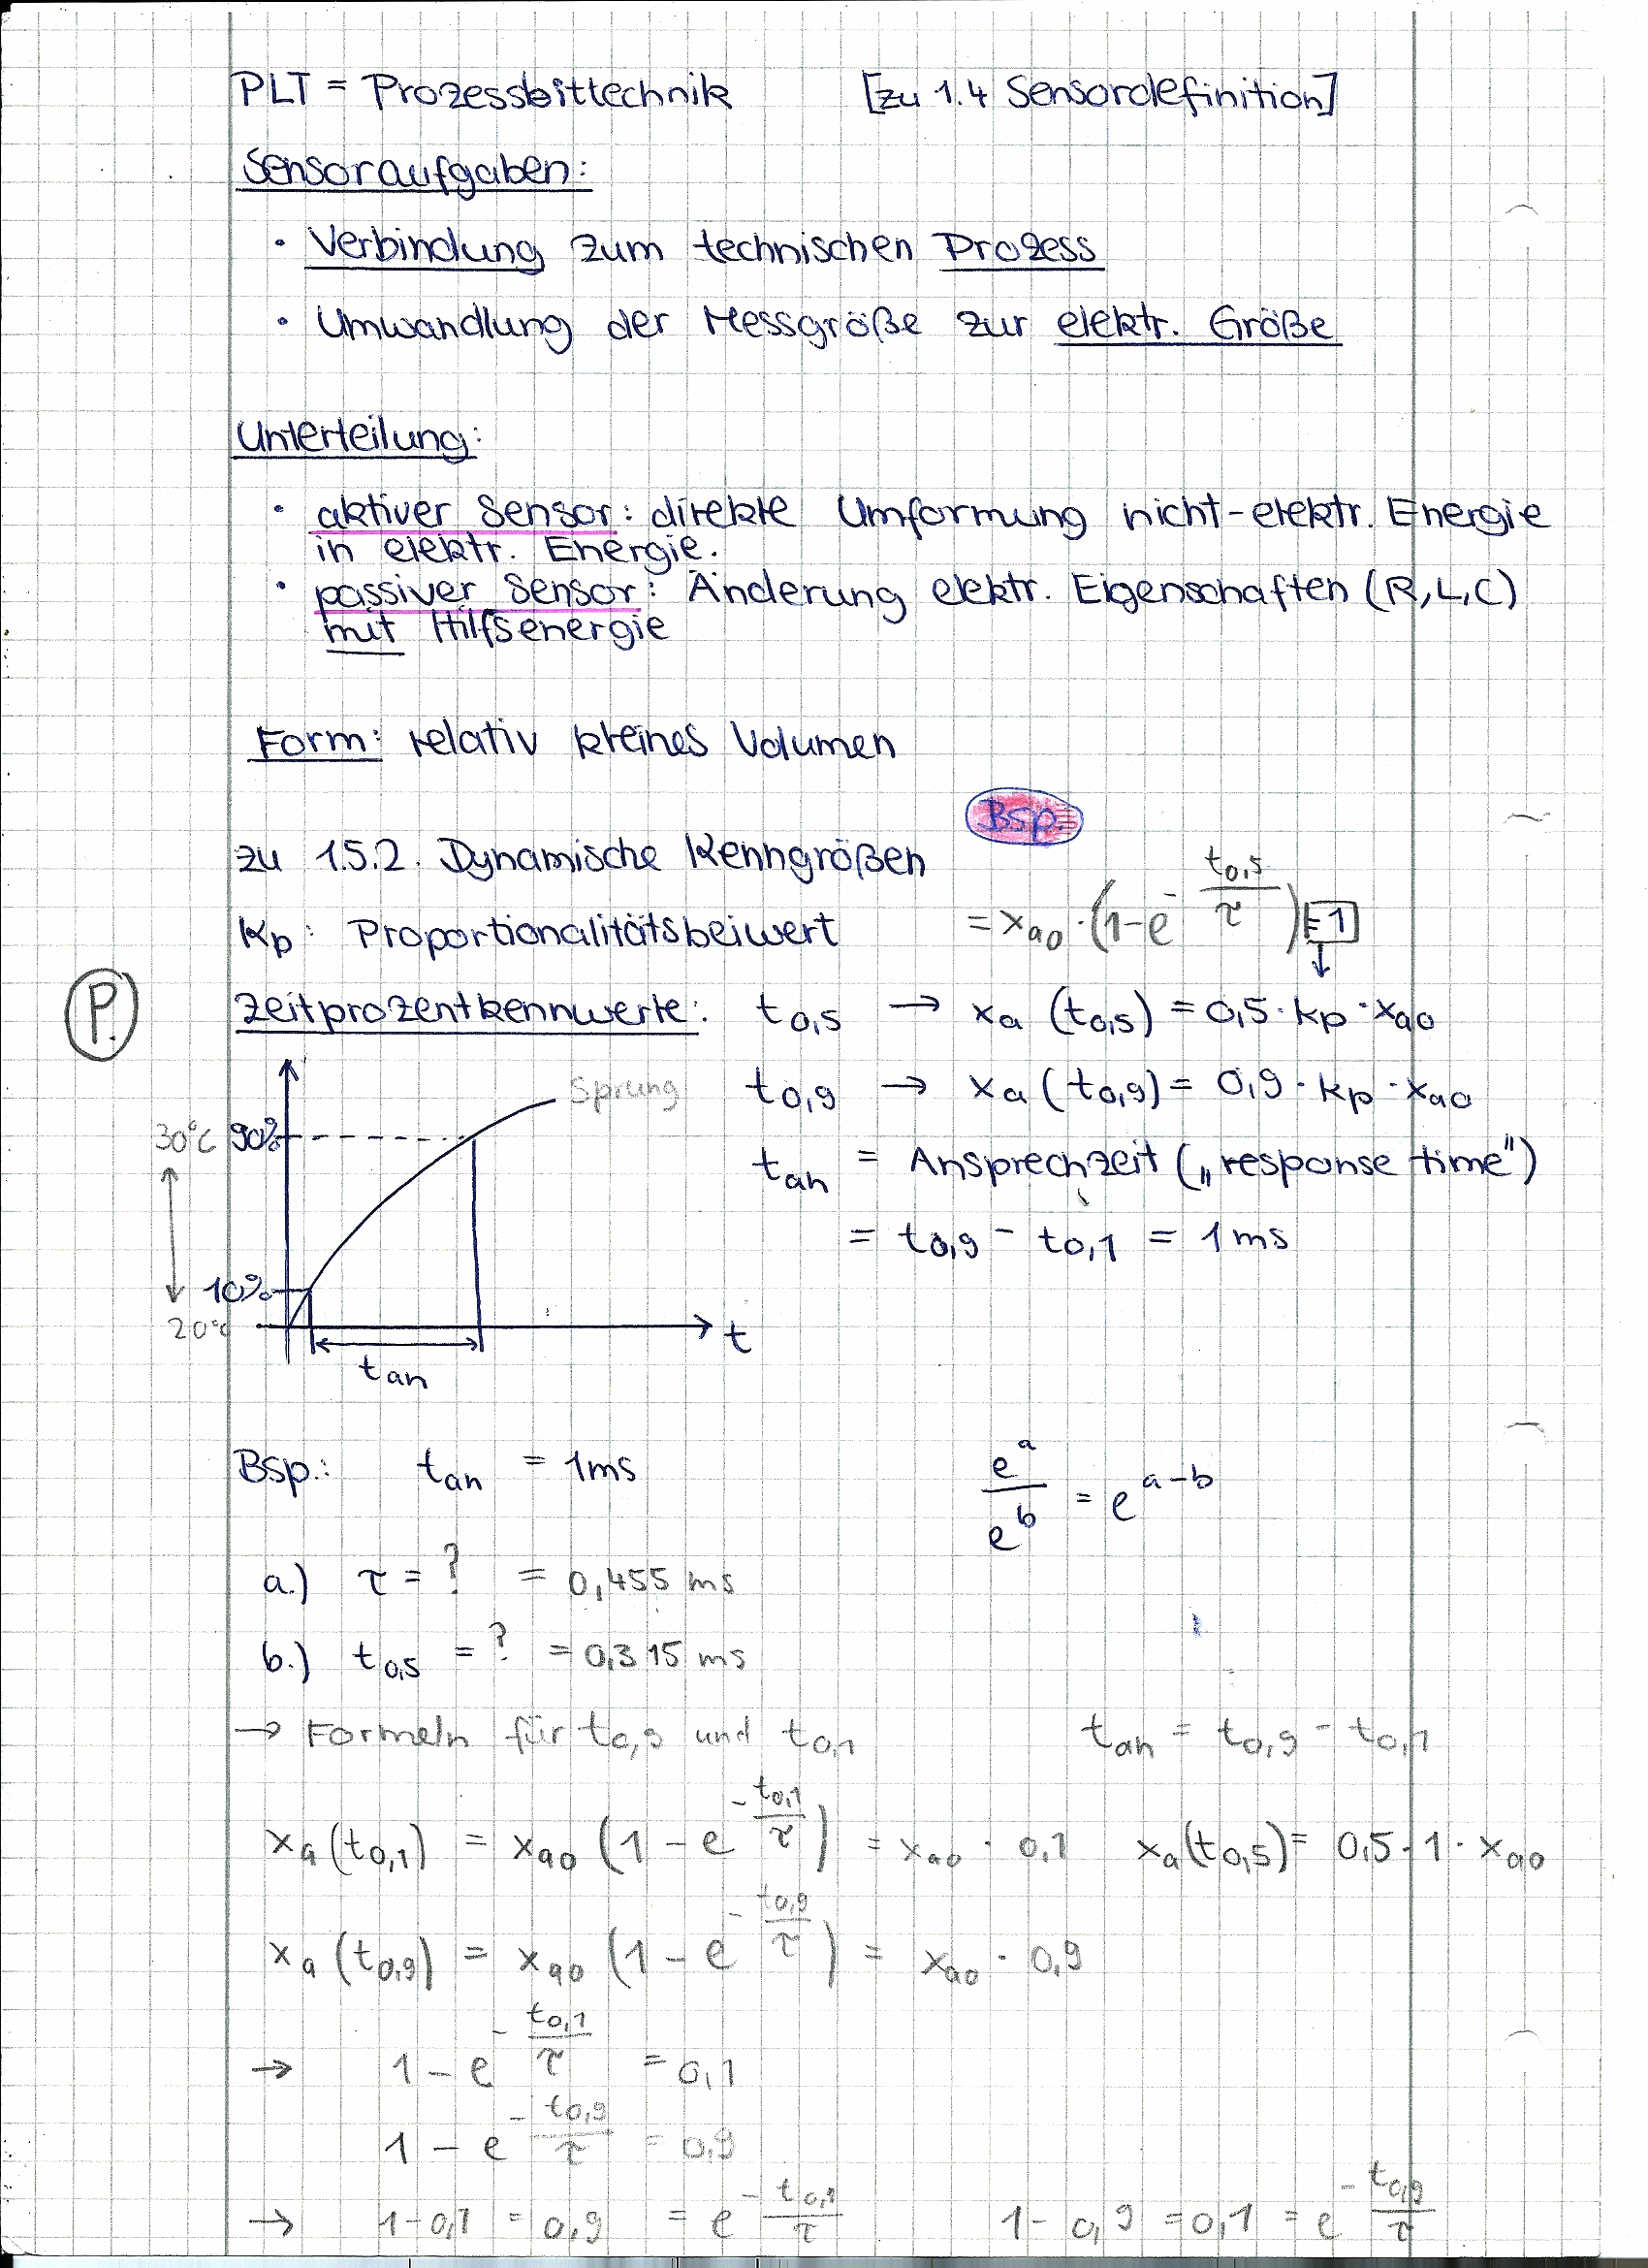 PLT = Prozessleittechnik [zu 1.4 Sensordefinition]
Sensoraufgaben:
• Verbindung zum technischen Prozess
• Umwandlung der Messgröße zur elektr. Größe
Unterteilung:
• aktiver Sensor: direkte Umformung nicht-elektr. Energie
in elektr. Energie.
• passiver Sensor: Änderung elektr. Eigenschaften (R,L,C)
mit Hilfsenergie
Form: relativ kleines Volumen
Bsp.
zu 1.5.2. Dynamische Kenngrößen
Kp: Proportionalitätsbeiwert = xa0 · (1-e^(-t0,5/τ)) = 1
↓
P.
Zeitprozentkennwerte: t0,5 → xa (t0,5) = 0,5 · kp · xa0
Sprung t0,9 → xa (t0,9) = 0,9 · kp · xa0
30°C 90%
tan = Ansprechzeit („response time")
= t0,9 - t0,1 = 1ms
10%
20°C
t
tan
Bsp.: tan = 1ms e^a/e^b = e^(a-b)
a.) τ = ? = 0,455 ms
b.) t0,5 = ? = 0,315 ms
→ Formeln für t0,9 und t0,1 tan = t0,9 - t0,1
xa(t0,1) = xa0 (1 - e^(-t0,1/τ)) = xa0 · 0,1 xa(t0,5) = 0,5 · 1 · xa0
xa (t0,9) = xa0 (1 - e^(-t0,9/τ)) = xa0 · 0,9
→ 1 - e^(-t0,1/τ) = 0,1
1 - e^(-t0,9/τ) = 0,9
→ 1-0,1 = 0,9 = e^(-t0,1/τ) 1 - 0,9 = 0,1 = e^(-t0,9/τ)